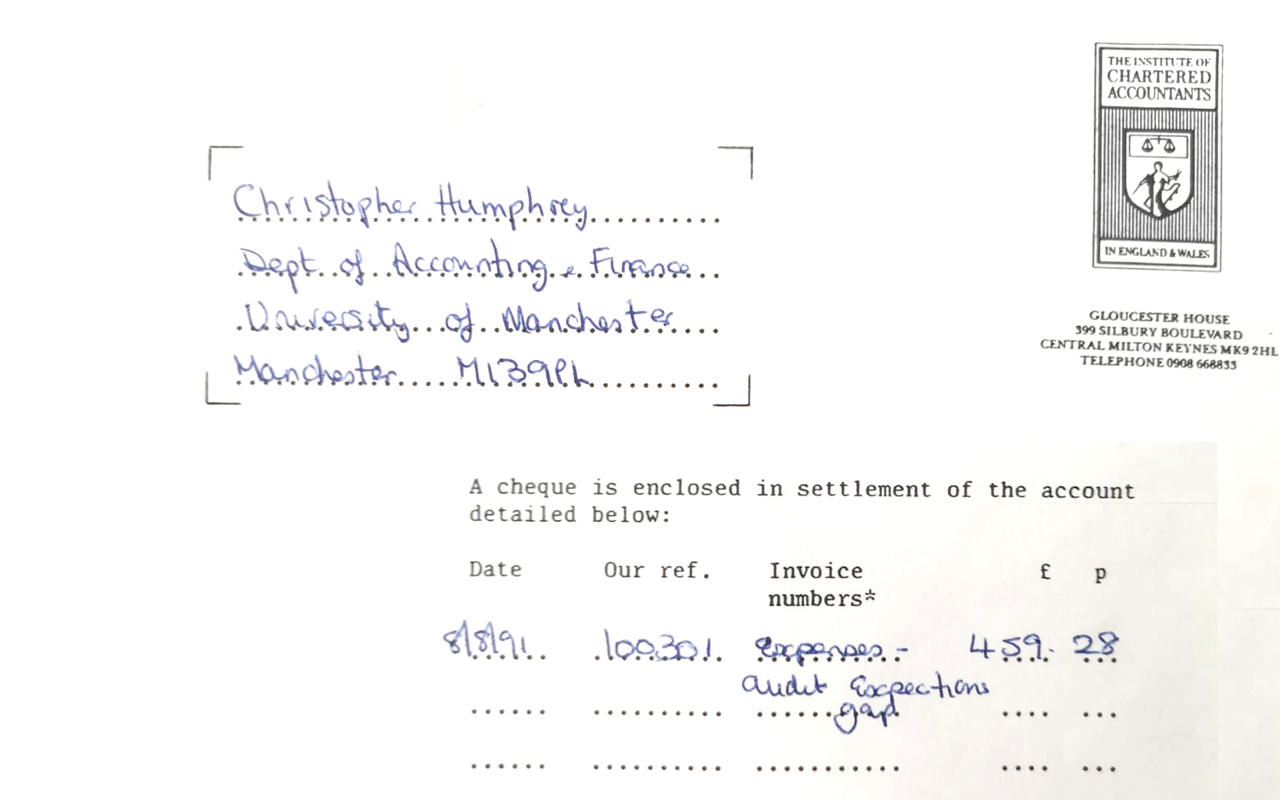 THE INSTITUTE OF
CHARTERED
ACCOUNTANTS
IN ENGLAND & WALES
GLOUCESTER HOUSE
399 SILBURY BOULEVARD
CENTRAL MILTON KEYNES MK9 2HL
TELEPHONE 0908 668833
Christopher Humphrey
Dept of Accounting & Finance
University of Manchester
Manchester M139PL
A cheque is enclosed in settlement of the account
detailed below:
Date Our ref. Invoice numbers* £ p
8/8/91 100301 Expenses - 459. 28
audit Expections
gap